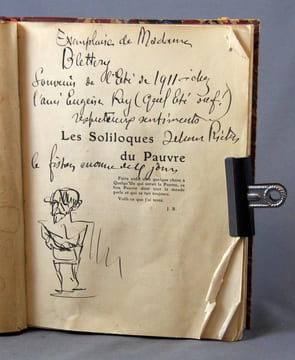 Exemplaire de Madame
Blettery
Souvenir de l'Eté de 1911 - chez
l'ami Eugène Rey (Quel été ouf!)
respectueux sentiments
Les Soliloques Jehan Rictus
du Pauvre
le fiston
jours
Faire enfin dire quelque chose à
Quelqu'Un qui serait le Pauvre, ce
bon Pauvre dont tout le monde
parle et qui se tait toujours.
Voilà ce que j'ai tenté.
J. R.